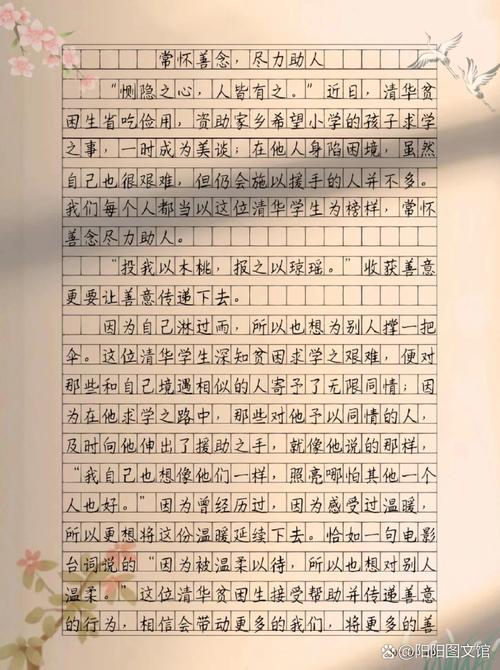 常怀善念，尽力助人
“恻隐之心，人皆有之。”近日，清华贫
困生省吃俭用，资助家乡希望小学的孩子求学
之事，一时成为美谈；在他人身陷困境，虽然
自己也很艰难，但仍会施以援手的人并不多。
我们每个人都当以这位清华学生为榜样，常怀
善念尽力助人。
“投我以木桃，报之以琼瑶。”收获善意
更要让善意传递下去。
因为自己淋过雨，所以也想为别人撑一把
伞。这位清华学生深知贫困求学之艰难，便对
那些和自己境遇相似的人寄予了无限同情；因
为在他求学之路中，那些对他予以同情的人，
及时向他伸出了援助之手，就像他说的那样，
“我自己也想像他们一样，照亮哪怕其他一个
人也好。”因为曾经历过，因为感受过温暖，
所以更想将这份温暖延续下去。恰如一句电影
台词说的“因为被温柔以待，所以也想对别人
温柔。”这位清华贫困生接受帮助并传递善意
的行为，相信会带动更多的我们，将更多的善
@阳阳图文馆